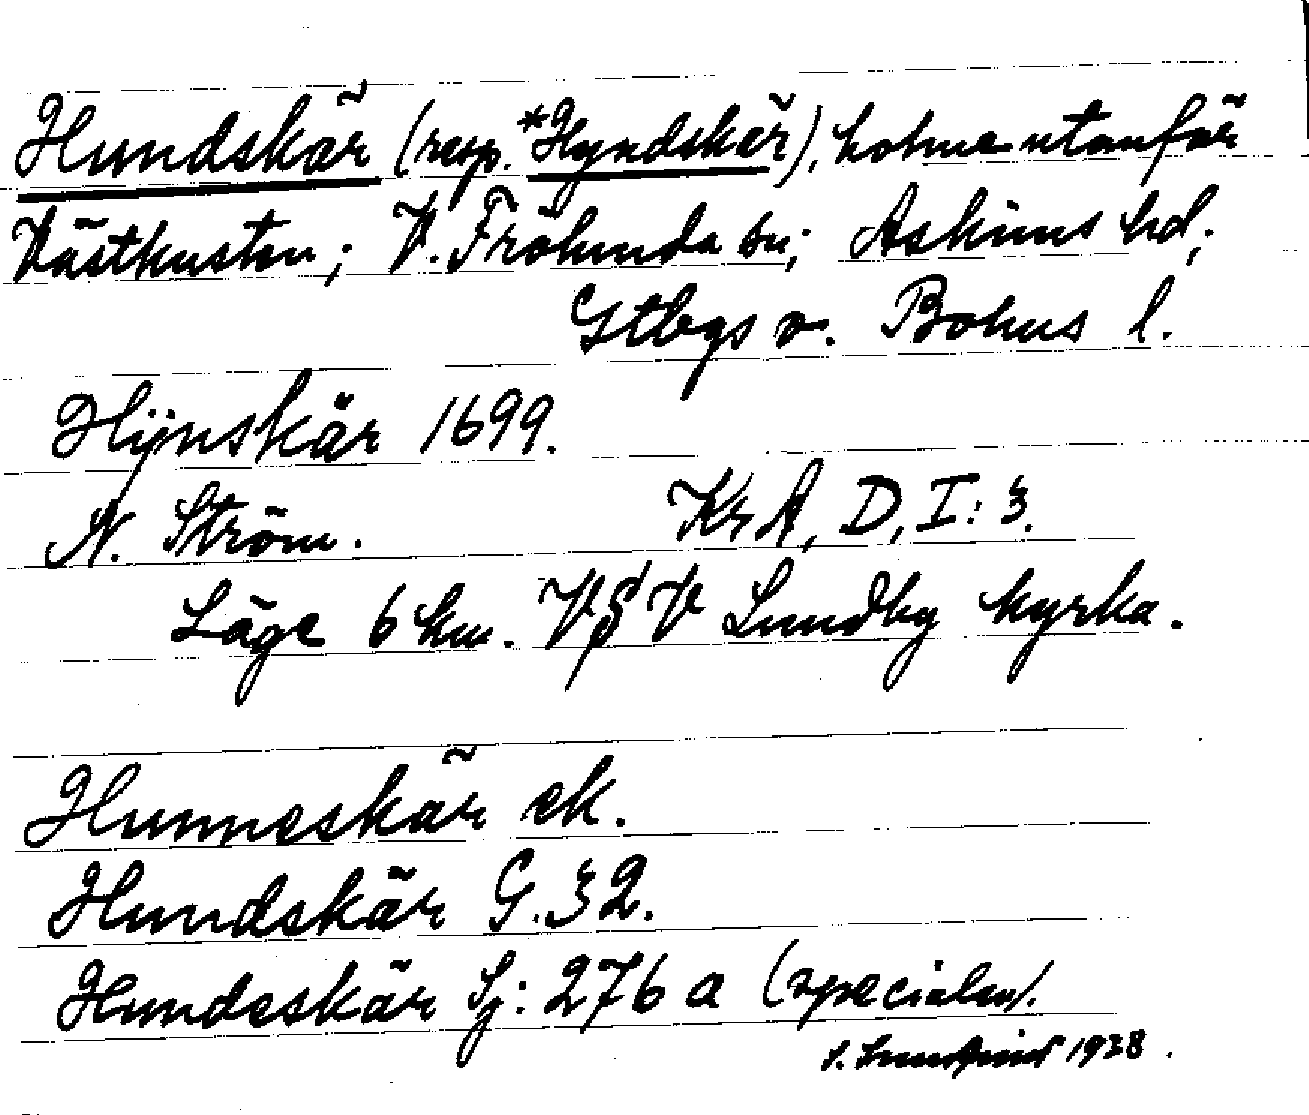 Hundskär (resp. *Hyndskär), holme utanför
Västkusten; V. Frölunda sn; Askims hd;
Gtbgs o. Bohus l.
Hÿnskär 1699.
N. Ström. KrA, D, I: 3.
Läge 6 km. VSV Lundby kyrka.
Hunneskär ek.
Hundskär G. 32.
Hundeskär Sj: 276 a (specialen).
1938.